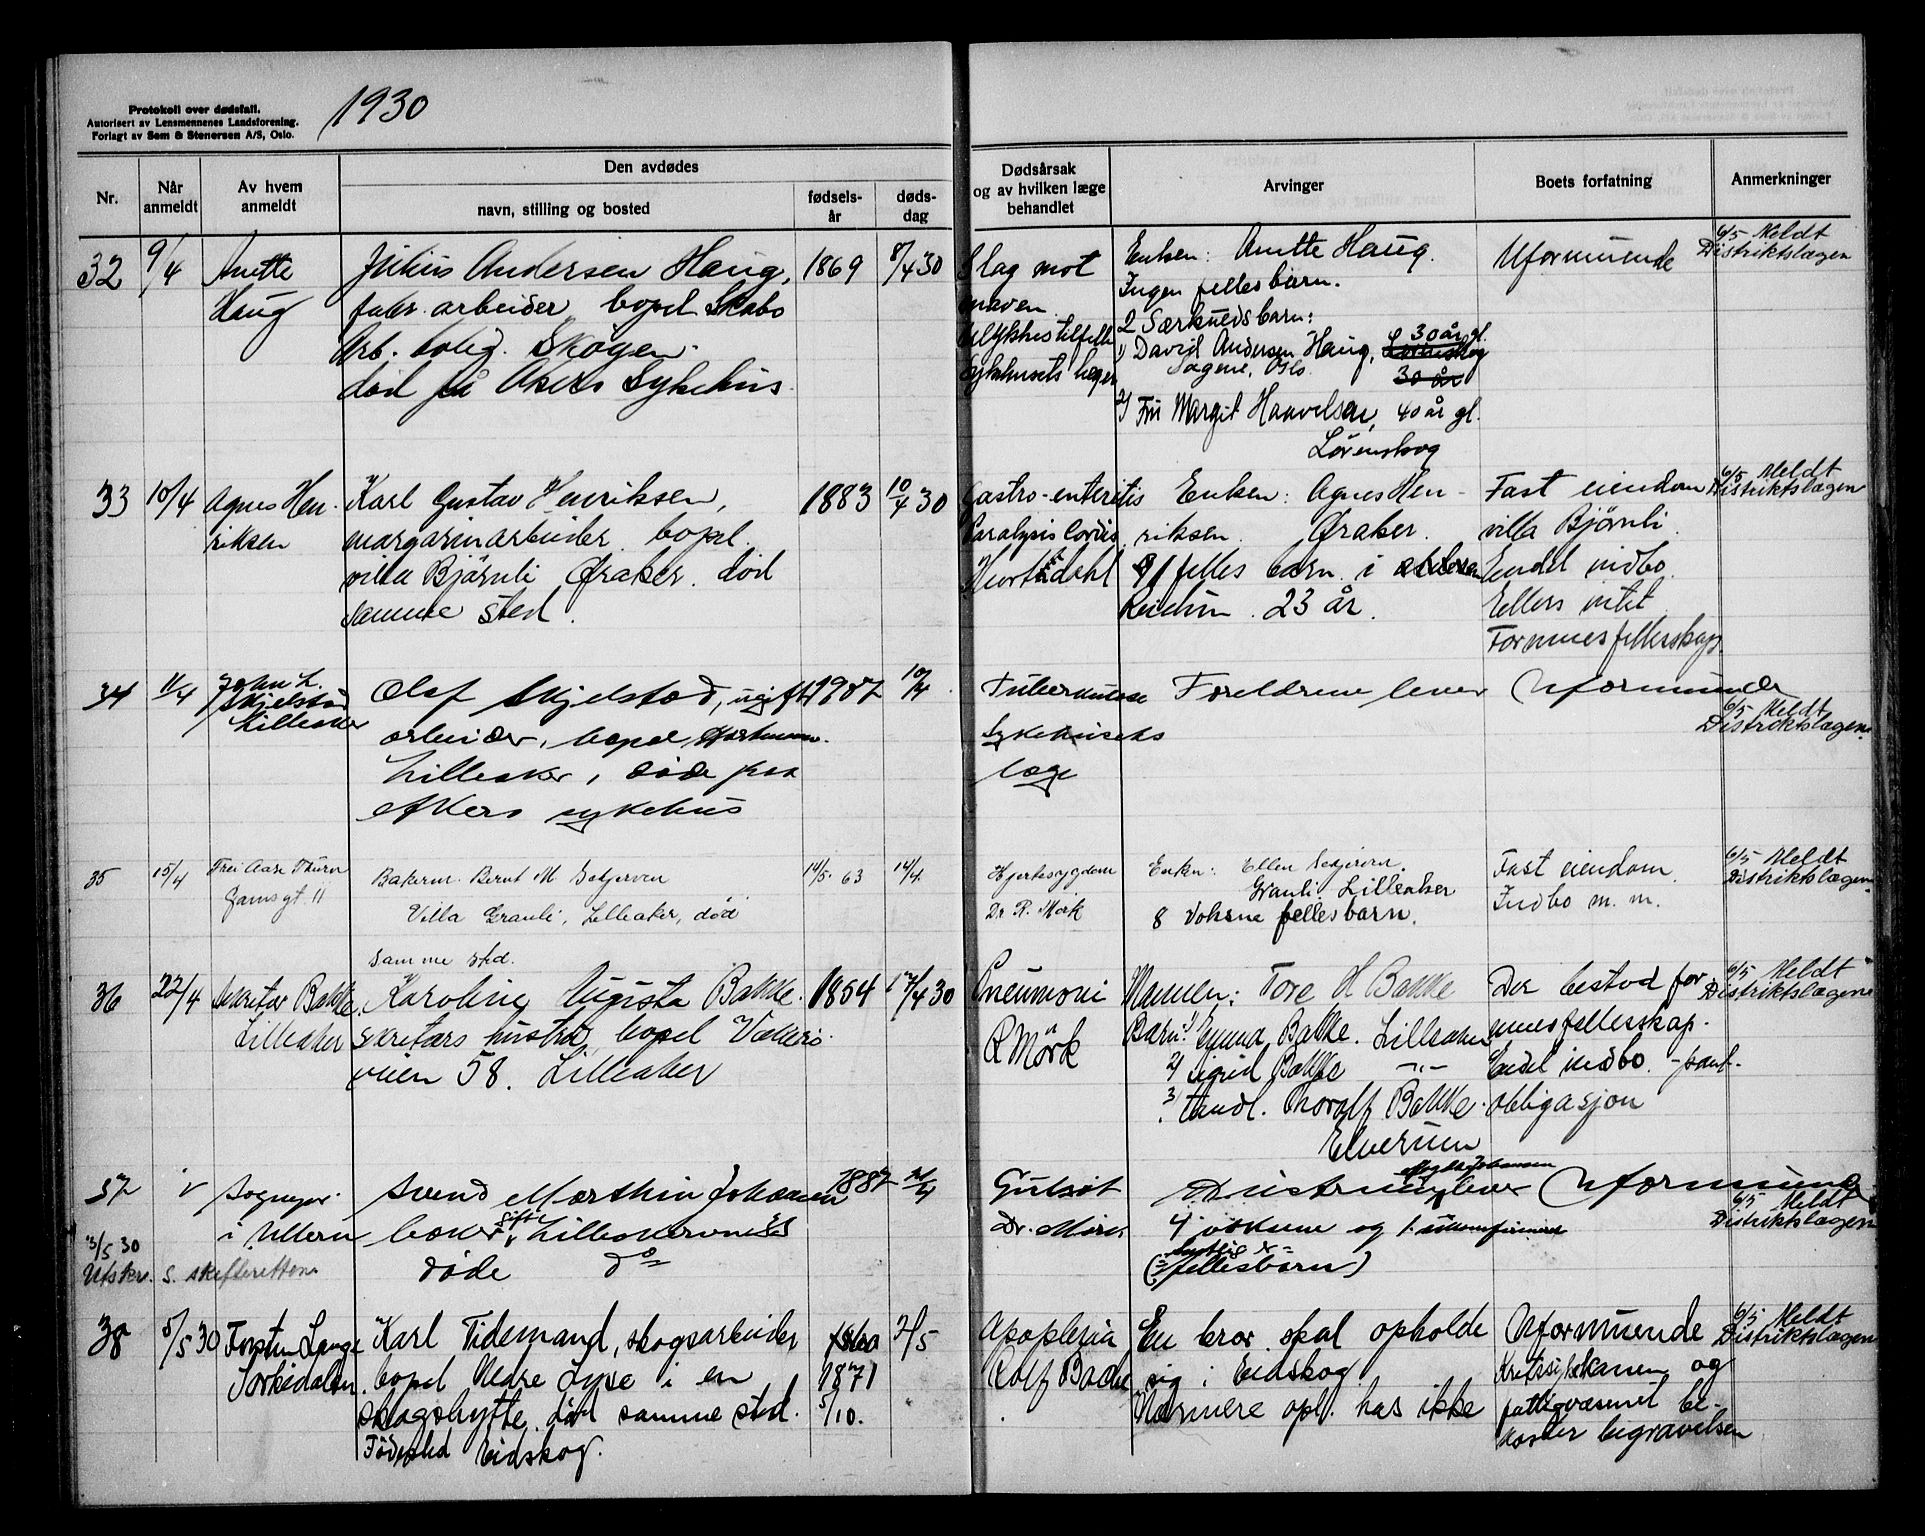 Protokoll over dødsfall.
Autorisert av Lensmennenes Landsforening.
Forlagt av Sem & Stenersen A/S, Oslo.
1930
Nr.
Når anmeldt
Av hvem anmeldt
Den avdødes
navn, stilling og bosted
fødsels-år
døds-dag
Dødsårsak og av hvilken læge behandlet
Arvinger
Boets forfatning
Anmerkninger
32
9/4
Anette
Haug
Julius Andersen Haug,
fabr. arbeider, bopel Skabo
Arb. bolig. Skøyen.
død på Akers Sykehus.
1869
8/4 30
Slag mot
maven
Ulykkestilfelle
Sykehusets læger
Enken: Anette Haug.
Ingen felles barn.
2 Særkuldsbarn:
1) David Andersen Haug, 30 år gl.
Sagene, Oslo. 30 år
2) Fru Margit Haavelsen, 40 år gl.
Lørenskog
Uformuende
6/5 Meldt
Distriktslægen
33
10/4
Agnes Hen-
riksen
Karl Gustav Henriksen,
margarinarbeider. bopel.
villa Bjørnli Øraker. død
samme sted.
1883
10/4 30
Gastro-enteritis
Paralysis Cordis
Hiortdahl
Enken: Agnes Hen-
riksen. Øraker.
1 felles barn i alderen
Reidun. 23 år.
Fast eiendom
villa Bjørnli
Endel indbo.
Ellers intet
Formuesfellesskap
6/5 Meldt
Distriktslægen
34
11/4
John L.
Skjelstad
Lilleaker
Olaf Skjelstad, ugift
arbeider, bopel
Lilleaker, døde paa
Akers sykehus
1907
10/4
Tuberkulose
Sykehusets
læge
Foreldrene lever
Uformuende
6/5 Meldt
Distriktslægen.
35
15/4
Fru Aase Thurn
Gamsgt 11
Bakerm. Bernt M
Villa Granli, Lilleaker, død
samme sted.
14/5 63
14/4.
Hjertesygdom
Dr R. Mørk
Enken: Ellen
Granli Lilleaker
8 voksne fellesbarn.
Fast eiendom.
Indbo m. m.
6/5 Meldt
Distriktslægen
36
22/4
Sekretær Bakke,
Lilleaker
Karoline Augusta Bakke.
sekretærs hustru, bopel Vækerø-
veien 58. Lilleaker
1854
17/4 30
Pneumoni
R Mørk
Mannen: Tore H Bakke
Barn: 1) Emma Bakke. Lilleaker
2) Sigrid Bakke -"-
3) Tandl. Thoralf Bakke.
Elverum
Der bestod for-
muesfellesskap.
Endel indbo. - pant-
obligasjon
6/5 Meldt
Distriktslægen
37
Sogneper.
i Ullern
Svend Marthin Johansen
baker, gift, Lilleaker
døde do
1887
Gulsot
Dr. Mørk
Hustru lever
4 voksne og 1 ukonfirmert
(fellesbarn)
Uformuende
6/5 Meldt
Distriktslægen
13/5 30
Utskr. S. skifteretten
38
5/5 30
Torsten Lange
Sørkedalen.
Karl Tidemand, skogsarbeider
bopel Nedre Lyse i en
skogshytte. død samme sted.
Fødested Eidskog.
1871
5/10.
2/5
Apoplexia
Rolf Bache
En bror skal opholde
sig i Eidskog.
Nærmere opl. has ikke
Uformuende
Kretssykekassen og
fattigvæsenet be-
koster begravelsen
6/5 Meldt
Distriktslægen